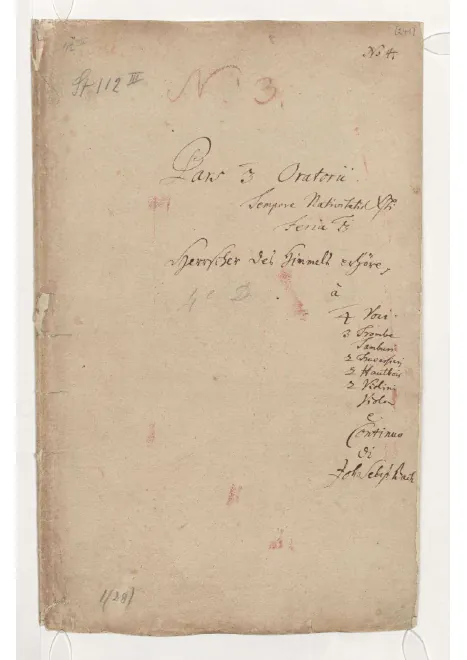 No 4.
St 112 III
No. 3.
Pars 3 Oratorii
Tempore Nativitatis Xsti
Feria 3
Herrscher des Himmels erhöre,
à
4 Voci.
3 Trombe
Tamburi
2 Traversieri
2 Hautbois
2 Violini
Viola
e
Continuo
di
Joh. Sebast. Bach
1(28)